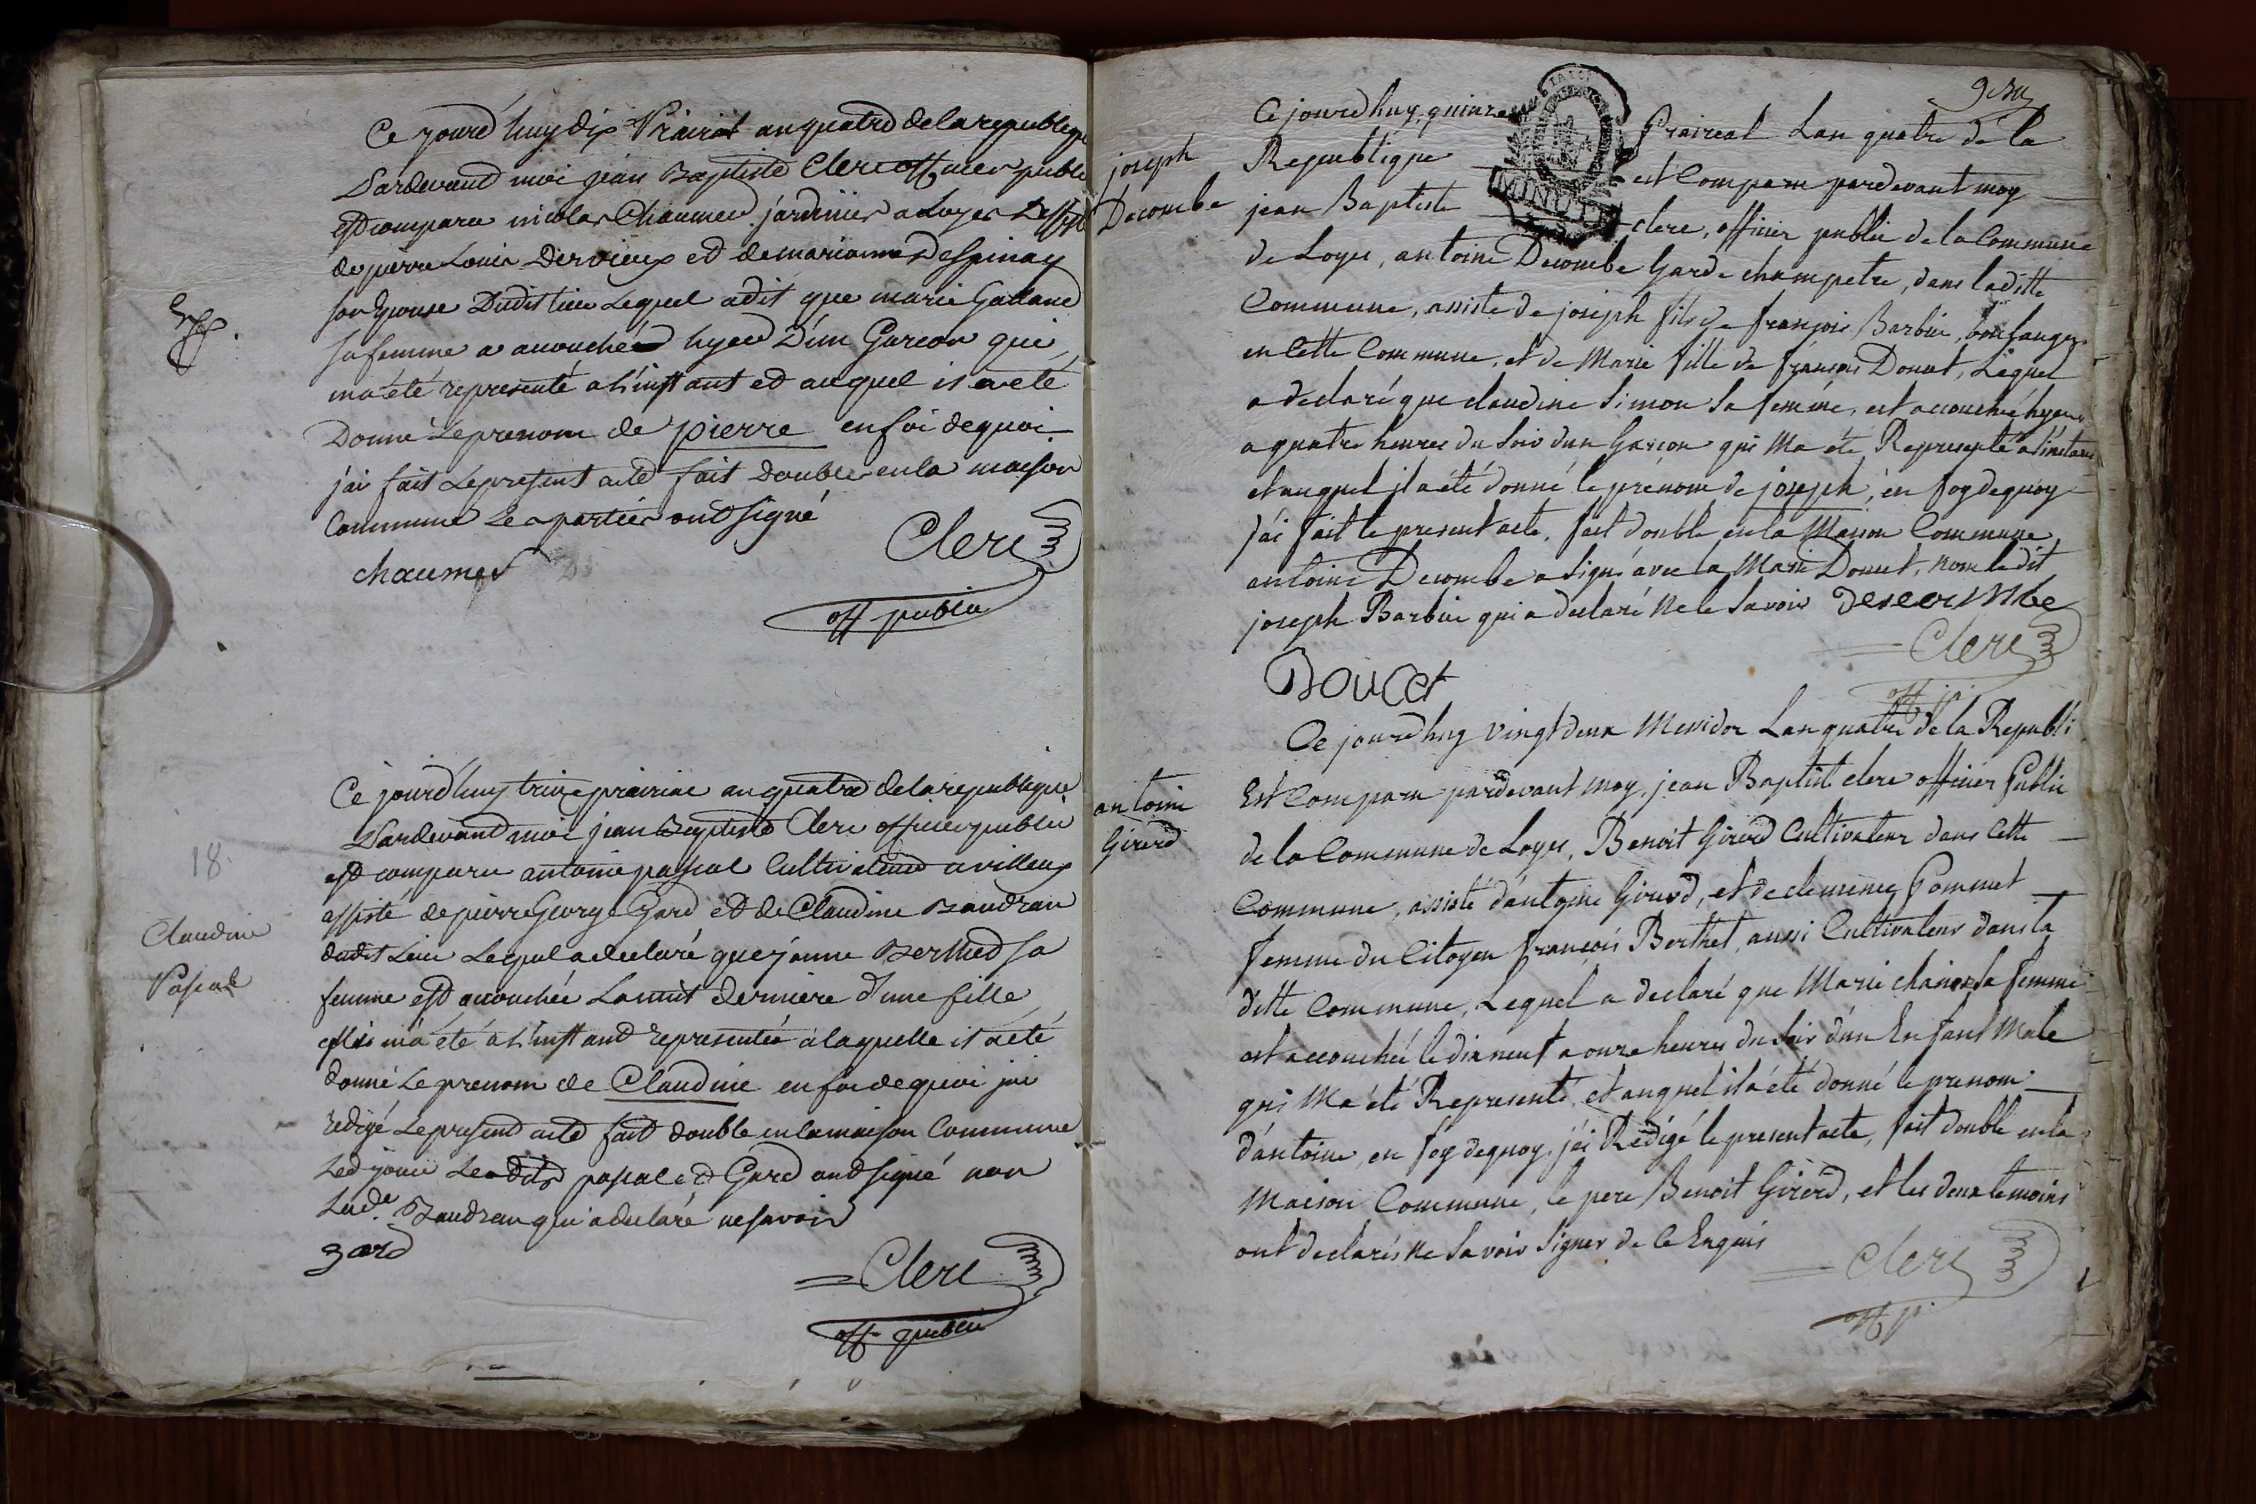 Ce jourd'huy dix Prairial an quatre de la republique
Pardevant moi jean Baptiste Clerc officier public
est comparu nicolas Chaumer jardinier a Loyes assisté
de pierre Louis Dervieux et de marianne Despinay
son Epouse Dudit lieu Lequel a dit que marie Galland
sa femme a accouchée hyer D'un Garcon qui
m'a été representé a L'instant et auquel il a été
Donné Le prenom de pierre en foi de quoi
j'ai fait Le present acte fait double en la maison
Commune Les parties ont signé
chaumer
Clerc
off public
18.
Claudine
Pascal
Ce jourd'huy treize prairial an quatre de la republique
Pardevant moi jean Baptiste Clerc officier public
est comparu antoine pascal Cultivateur a villieux
assisté de pierre George Gard et de Claudine Baudran
dudit Lieu Lequel a declaré que janne Berthet sa
femme est accouchée La nuit derniere d'une fille
m'a été a L'instant representée a laquelle il a été
donné Le prenom de Claudine en foi de quoi j'ai
redigé Le present acte fait double en la maison Commune
Led jour Lesdits pascal et Gard ont signé non
Lade. Baudran qui a declaré ne savoir
gard
Clerc
off public
joseph
Decombe
Ce jourd'huy quinze Praireal Lan quatre de la
Republique est Comparu pardevant moy
jean Baptiste clerc, officier public de la Commune
MINUTE
de Loyes, antoine Decombe Garde champetre, dans la ditte
Commune, assisté de joseph fils de françois Barbier, boulanger
en Cette Commune, et de Marie fille de françois Doucet, Lequel
a declaré que claudine Simon Sa femme, est accouchée hyer
a quatre heures du Soir d'un Garcon qui M'a été Representé a l'instant
et auquel il a été donné le prénom de joseph, en foy de quoy
j'ai fait le present acte, fait double en la Maison Commune
antoine Decombe a Signé avec la Marie Doucet, non le dit
joseph Barbier qui a declaré Ne le Savoir Desecombe
Clerc
Doucet
off p.
antoine
Girerd
Ce jourd'huy vingt deux Messidor Lan quatre de la Republi
Est Comparu pardevant moy, jean Baptiste clerc officier Public
de la Commune de Loyes, Benoit Girerd Cultivateur dans Cette
Commune, assisté d'antoine Girerd, et de clemence Pommet
femme du Citoyen françois Berthet, aussi Cultivateur dans la
ditte Commune, Lequel a declaré que Marie sa femme
est accouchée le dix neuf a onze heures du Soir d'un Enfant Male
qui M'a été Representé, et auquel il a été donné le prenom
d'antoine, en foy de quoy, j'ai Rédigé le present acte, fait double en la
Maison Commune, le pere Benoit Girerd, et les deux temoins
ont declarés Ne Savoir Signer de Ce Enquis
Clerc
off p.